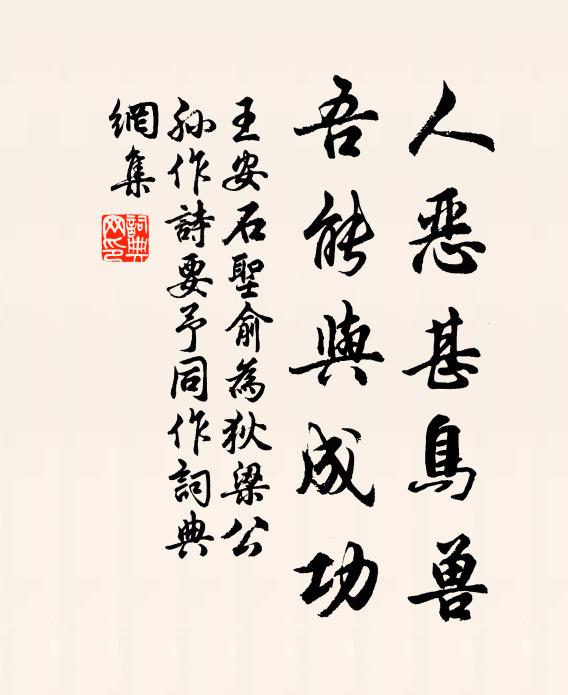 人惡甚鳥兽
吾能與成功
王安石聖俞為狄梁公
孫作詩要予同作詞典
網集
詞典網印